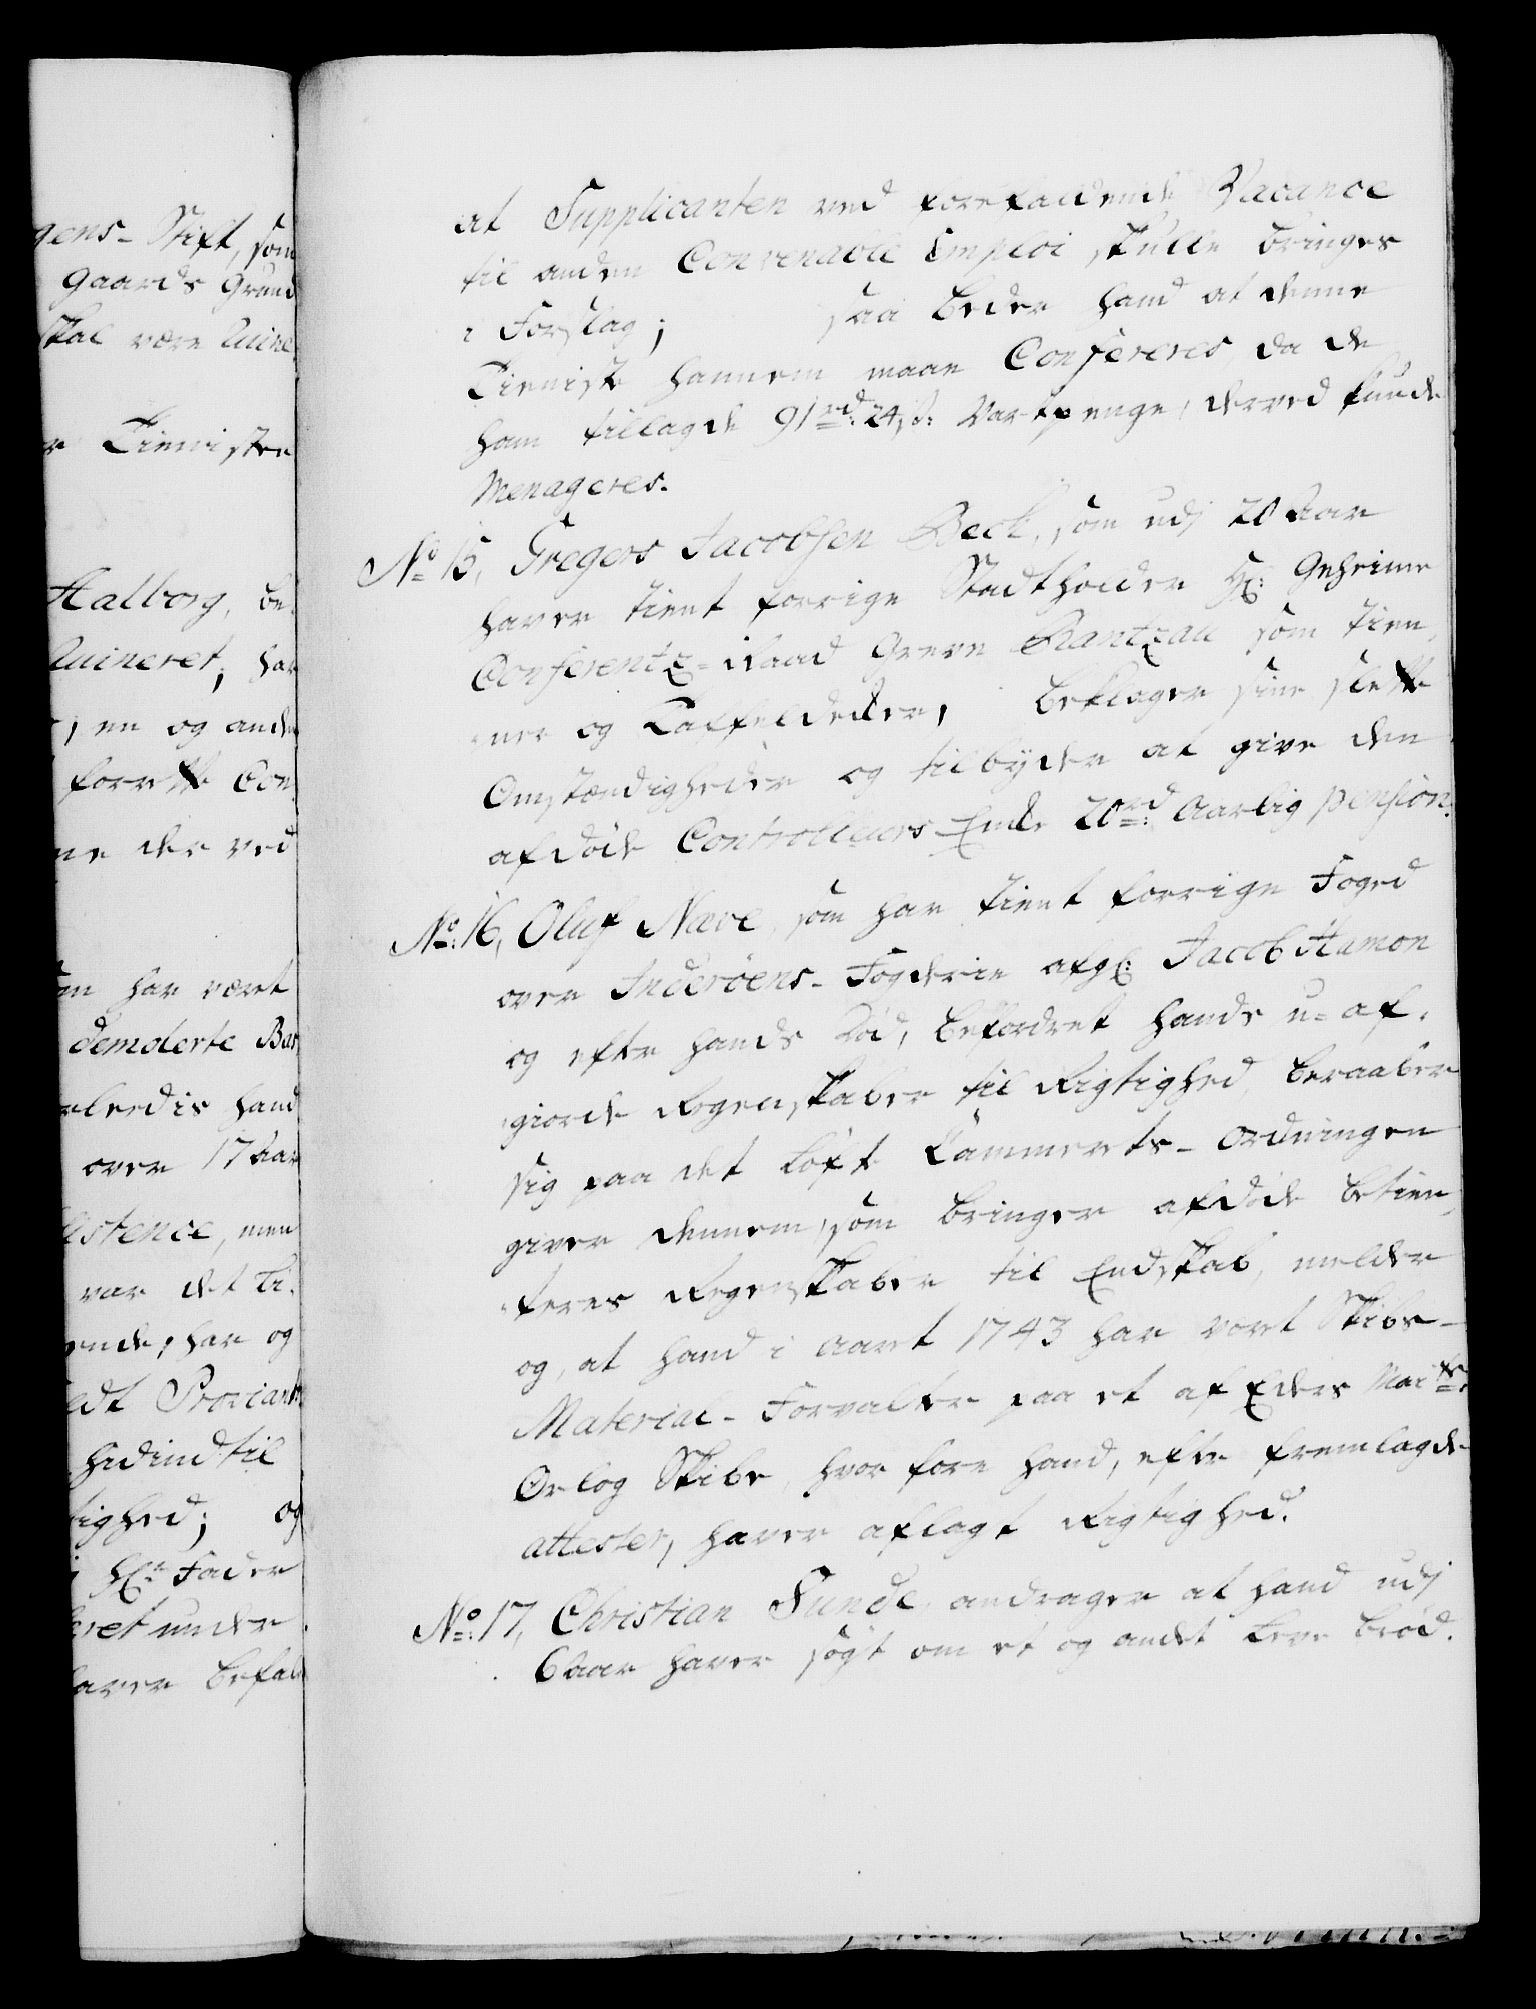 gens-Stift, som
gaards Grund
skal være Ruine
Tienisten
Aalborg, be-
Ruineret; har
en og anden
forrette Con-
der ved
har været
demolerte Bat
ledis hand
over 17 aar
sistence, men
var det Ti-
ende, har og
Proviant
hidindtil
tighed; og
Hr. Fader
under
haver befal
at Supplicanten ved forefaldende Vacance
til anden Convenable Emploi skulle bringes
i Forslag; saa beder hand at denne
Tieniste hannem maae Confereres, da de
ham tillagde 91 rd: 24 s: Vartpenge, derved kunde
Menageres.
No 15, Gregers Jacobsen Beck, som udj 20 Aar
haver tient forrige Stadtholder Hr: Geheime
Conferentz-Raad Greve Rantzau som tien-
ner og Taffeldecker, beklager sine slette
Omstændigheder og tilbyder at give den
afdøde Controlleurs Enke 20 rd: Aarlig Pension.
No: 16, Oluf Næve, som har tient forrige Foged
over Inderöens-Fogderie afg: Jacob Hamon
og efter hands Død, befordret hands u-af-
giorde Regenskaber til Rigtighed, beraaber
sig paa det Løfte Cammerets-Ordningen
giver dennem, som bringer afdøde betien-
teres Regenskaber til Endskab, melder
og, at hand i Aaret 1743 har voret Skibs-
Material-Forvalter paa et af Eders Maits:
Orlog Skibe, hvor fore hand, efter fremlagde
attester, haver aflagt Rigtighed.
No: 17, Christian Sunde, andrager at hand udj
6 aar haver søgt om et og andet Leve brød.